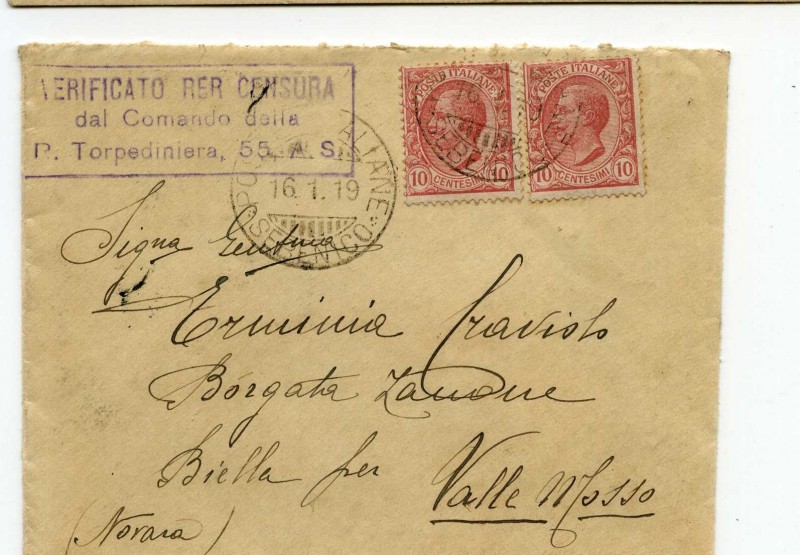 VERIFICATO RER CENSURA
dal Comando della
R. Torpediniera, 55, A S.
POSTE ITALIANE
10 CENTESIMI 10
POSTE ITALIANE
10 CENTESIMI 10
ALIANE
16.1.19
SEBENICO
Signa Gentma
Erminia Craviolo
Borgata Zanone
Biella per Valle Mosso
(Novara)